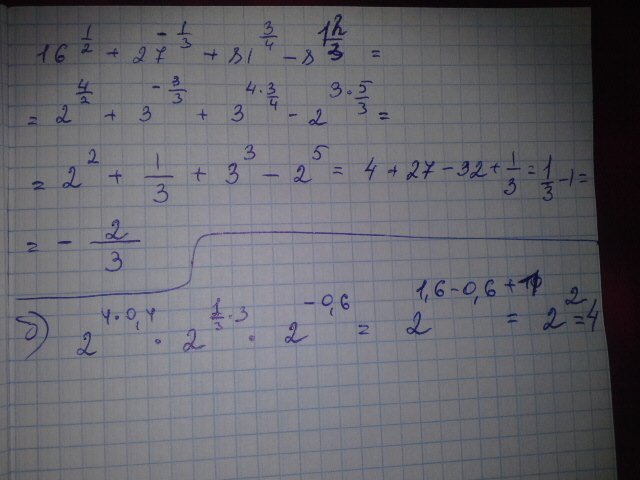 16^{1/2} + 27^{-1/3} + 81^{3/4} - 8^{1 2/3} =
= 2^{4/2} + 3^{-3/3} + 3^{4·3/4} - 2^{3·5/3} =
= 2^2 + 1/3 + 3^3 - 2^5 = 4 + 27 - 32 + 1/3 = 1/3 - 1 =
= - 2/3
б) 2^{4·0,4} · 2^{1/3·3} · 2^{-0,6} = 2^{1,6-0,6+1} = 2^2 = 4